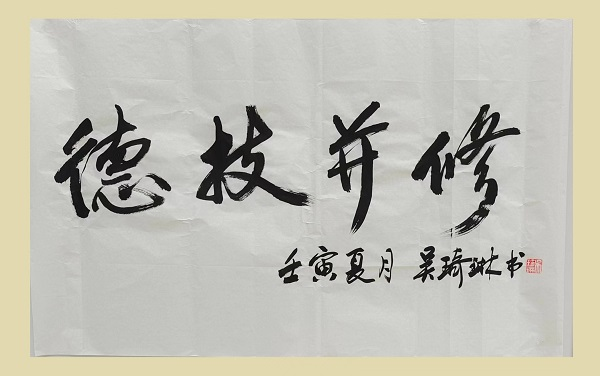 德技并修
壬寅夏月 吴琦琳书